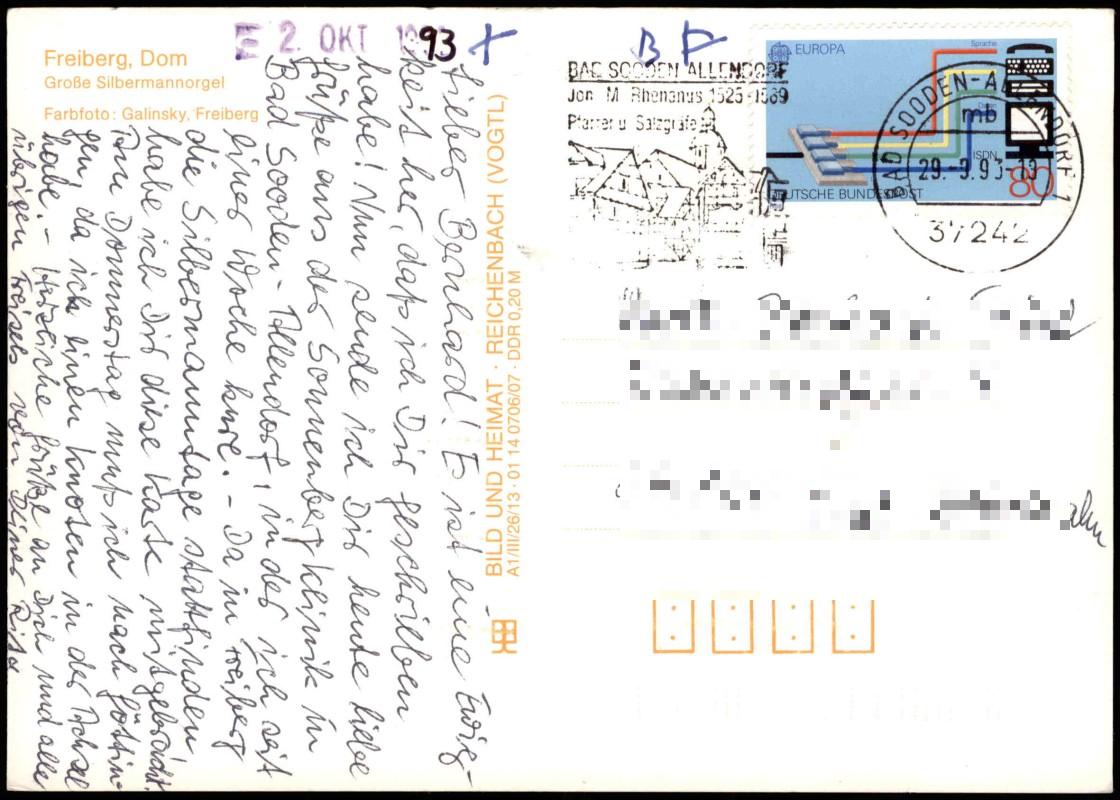 Freiberg, Dom
Große Silbermannorgel
Farbfoto: Galinsky, Freiberg
2. OKT 1993
B
BAD SOODEN-ALLENDORF
Joh. M. Rhenanus 1525-1589
Pfarrer u. Salzgräfe
EUROPA
Sprache
Text
ISDN
80
DEUTSCHE BUNDESPOST
BAD SOODEN-ALLENDORF 1
mb
29.-9.93-
37242
Lieber Bernhard! Es ist eine Ewig-
keit her, daß ich Dir geschrieben
habe! Nun sende ich Dir heute liebe
Grüße aus der Sonnenberg Klinik in
Bad Sooden-Allendorf, in der ich seit
einer Woche kure. - Da in Freiberg
die Silbermanntage stattfinden
habe ich Dir diese Karte mitgebracht.
Am Donnerstag muß ich nach Göttin-
gen, da ich einen Knoten in der Achsel
habe. - Herzliche Grüße an Dich und alle
übrigen Freisels von Deiner Rita
BILD UND HEIMAT · REICHENBACH (VOGTL)
A1/III/26/13 · 01 14 0706/07 · DDR 0,20 M